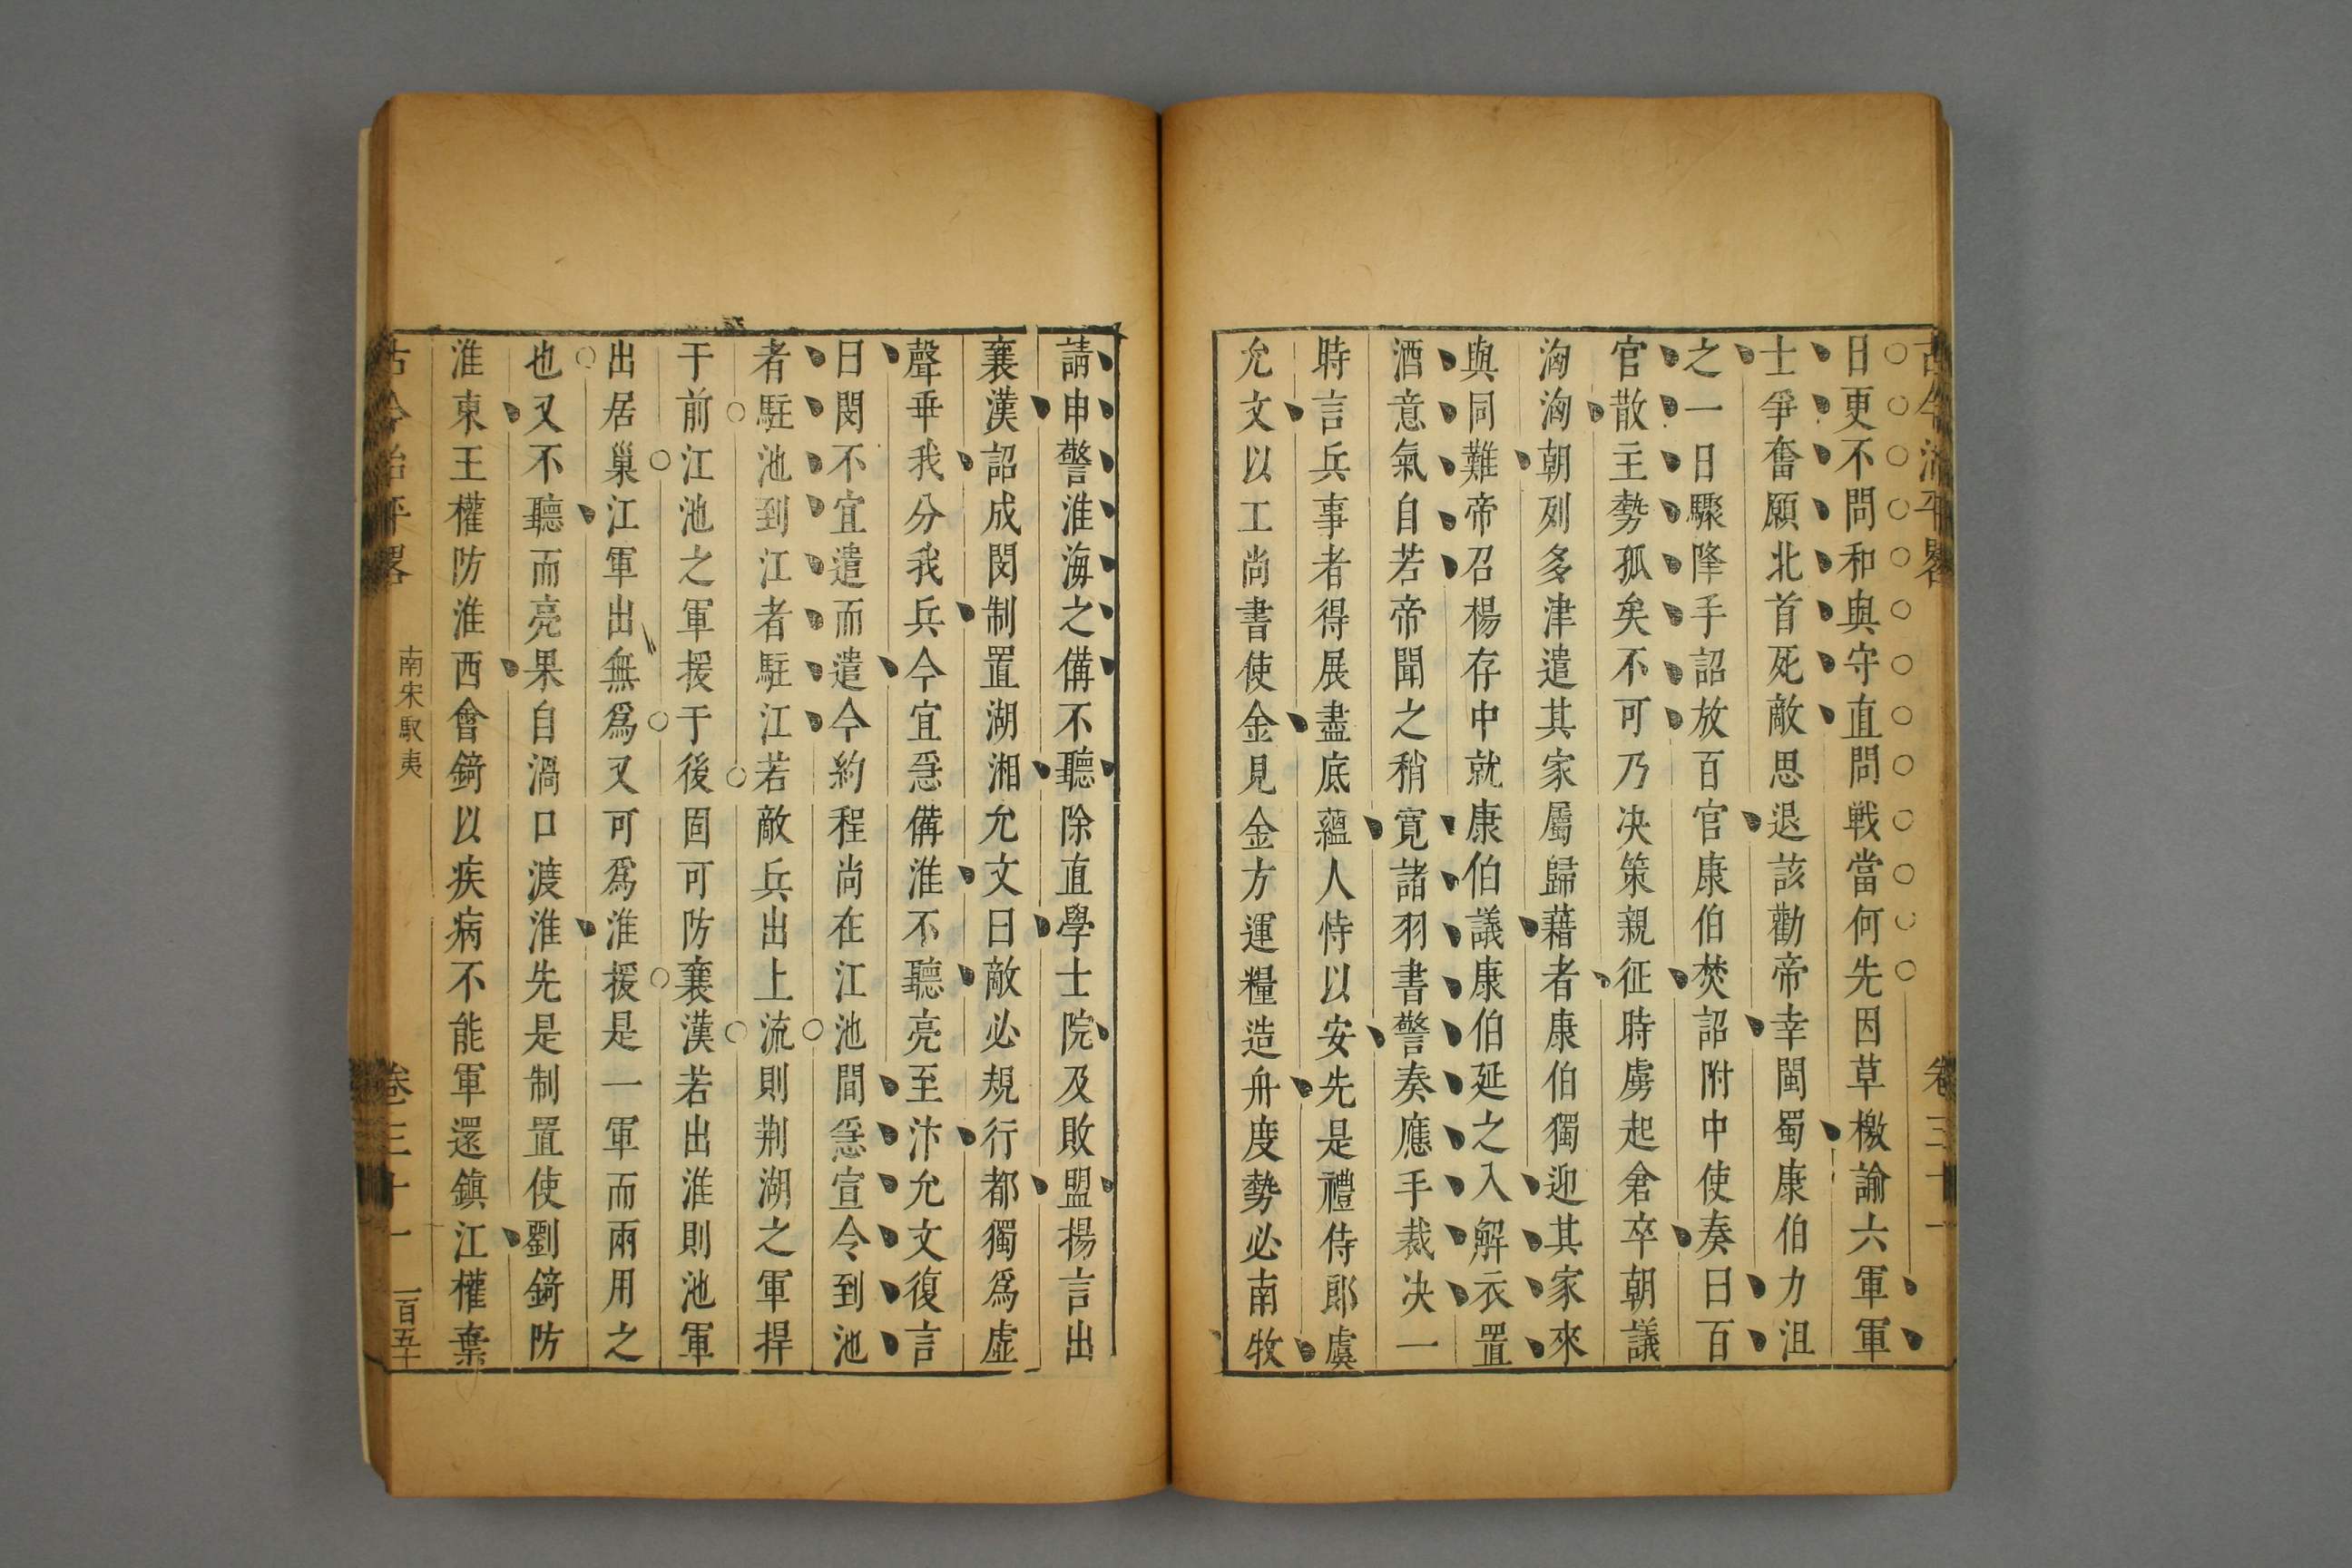 古今治平畧 卷三十一
日更不問和與守直問戰當何先因草檄諭六軍軍
士爭奮願北首死敵思退該勸帝幸閩蜀康伯力沮
之一日驟降手詔放百官康伯焚詔附中使奏曰百
官散主勢孤矣不可乃决策親征時虜起倉卒朝議
洶洶朝列多津遣其家屬歸藉者康伯獨迎其家來
與同難帝召楊存中就康伯議康伯延之入解衣置
酒意氣自若帝聞之稍寛諸羽書警奏應手裁决一
時言兵事者得展盡底蘊人恃以安先是禮侍郎虞
允文以工尚書使金見金方運糧造舟度勢必南牧
請申警淮海之備不聽除直學士院及敗盟揚言出
襄漢詔成閔制置湖湘允文曰敵必規行都獨爲虛
聲乖我分我兵今宜急備淮不聽亮至汴允文復言
日閔不宜遣而遣今約程尚在江池間急宣令到池
者駐池到江者駐江若敵兵出上流則荆湖之軍捍
于前江池之軍援于後固可防襄漢若出淮則池軍
出居巢江軍出無爲又可爲淮援是一軍而兩用之
也又不聽而亮果自渦口渡淮先是制置使劉錡防
淮東王權防淮西會錡以疾病不能軍還鎮江權棄
古今治平畧 南宋馭夷 卷三十一 一百五十